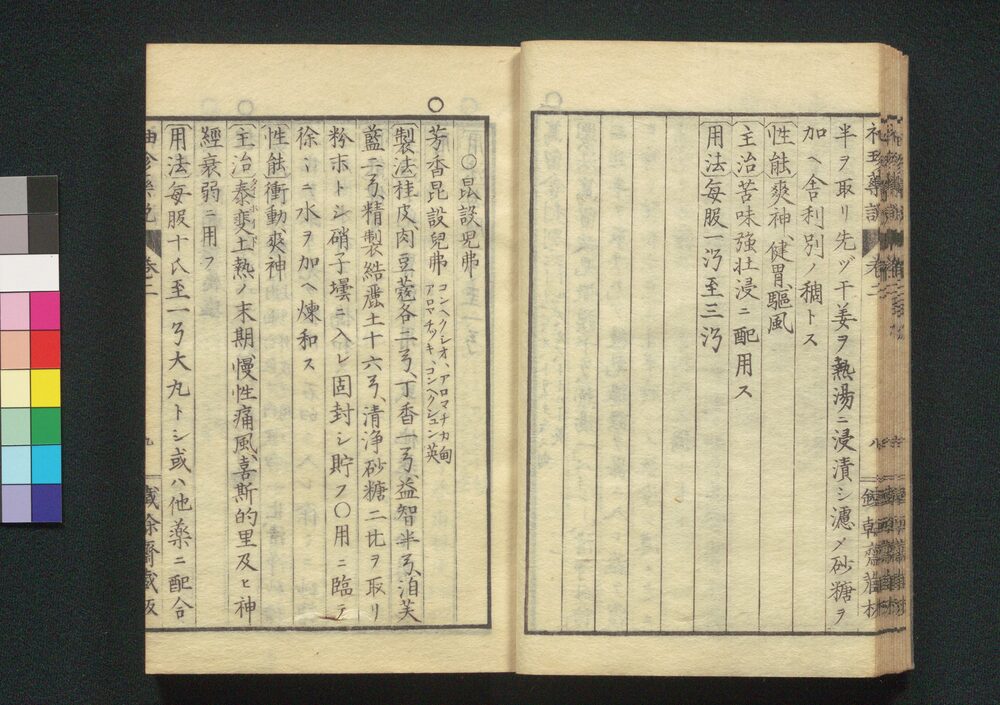 半ヲ取リ先ヅ干姜ヲ熱湯ニ浸漬シ濾メ砂糖ヲ
加ヘ舎利別ノ稠トス
性能爽神、健胃、驅風
主治苦味強壮浸ニ配用ス
用法毎服一沔至三沔
○昆設児弗
○
芳香昆設児弗
コンヘクシオ、アロマチカ甸
アロマチッキ、コンヘクシュン英
製法桂皮、肉豆蔲各二弓、丁香一弓、益智半弓、泊芙
藍二弓、精製結麗土十六弓、清浄砂糖二比ヲ取リ
粉末トシ硝子壜ニ入レ固封シ貯フ○用ニ臨テ
徐々ニ水ヲ加ヘ煉和ス
性能衝動、爽神
主治泰斐士熱ノ末期、慢性痛風、喜斯的里及ヒ神
經衰弱ニ用フ
用法毎服十氏至一弓大丸トシ或ハ他薬ニ配合